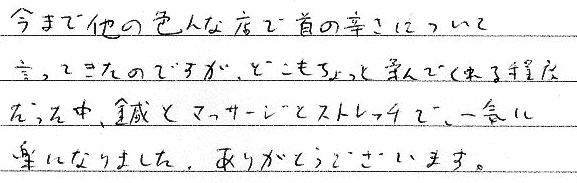 今まで他の色んな店で首の辛さについて
言ってきたのですが、どこもちょっと揉んでくれる程度
だった中、鍼とマッサージとストレッチで、一気に
楽になりました。ありがとうございます。